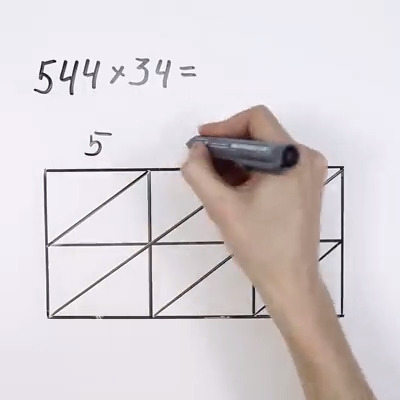 544×34=
5